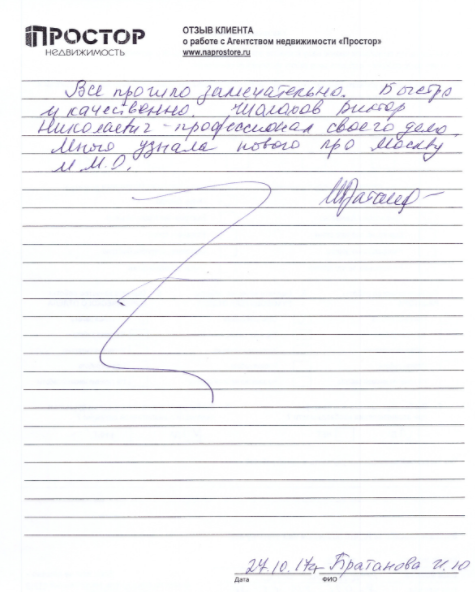 ПРОСТОР
НЕДВИЖИМОСТЬ
ОТЗЫВ КЛИЕНТА
о работе с Агентством недвижимости «Простор»
www.naprostore.ru
Все прошло замечательно. Быстро
и качественно. Шолохов Виктор
Николаевич - профессионал своего дела.
Много узнала нового про Москву
и М.О.
27.10.17г Братанова И.Ю
Дата ФИО